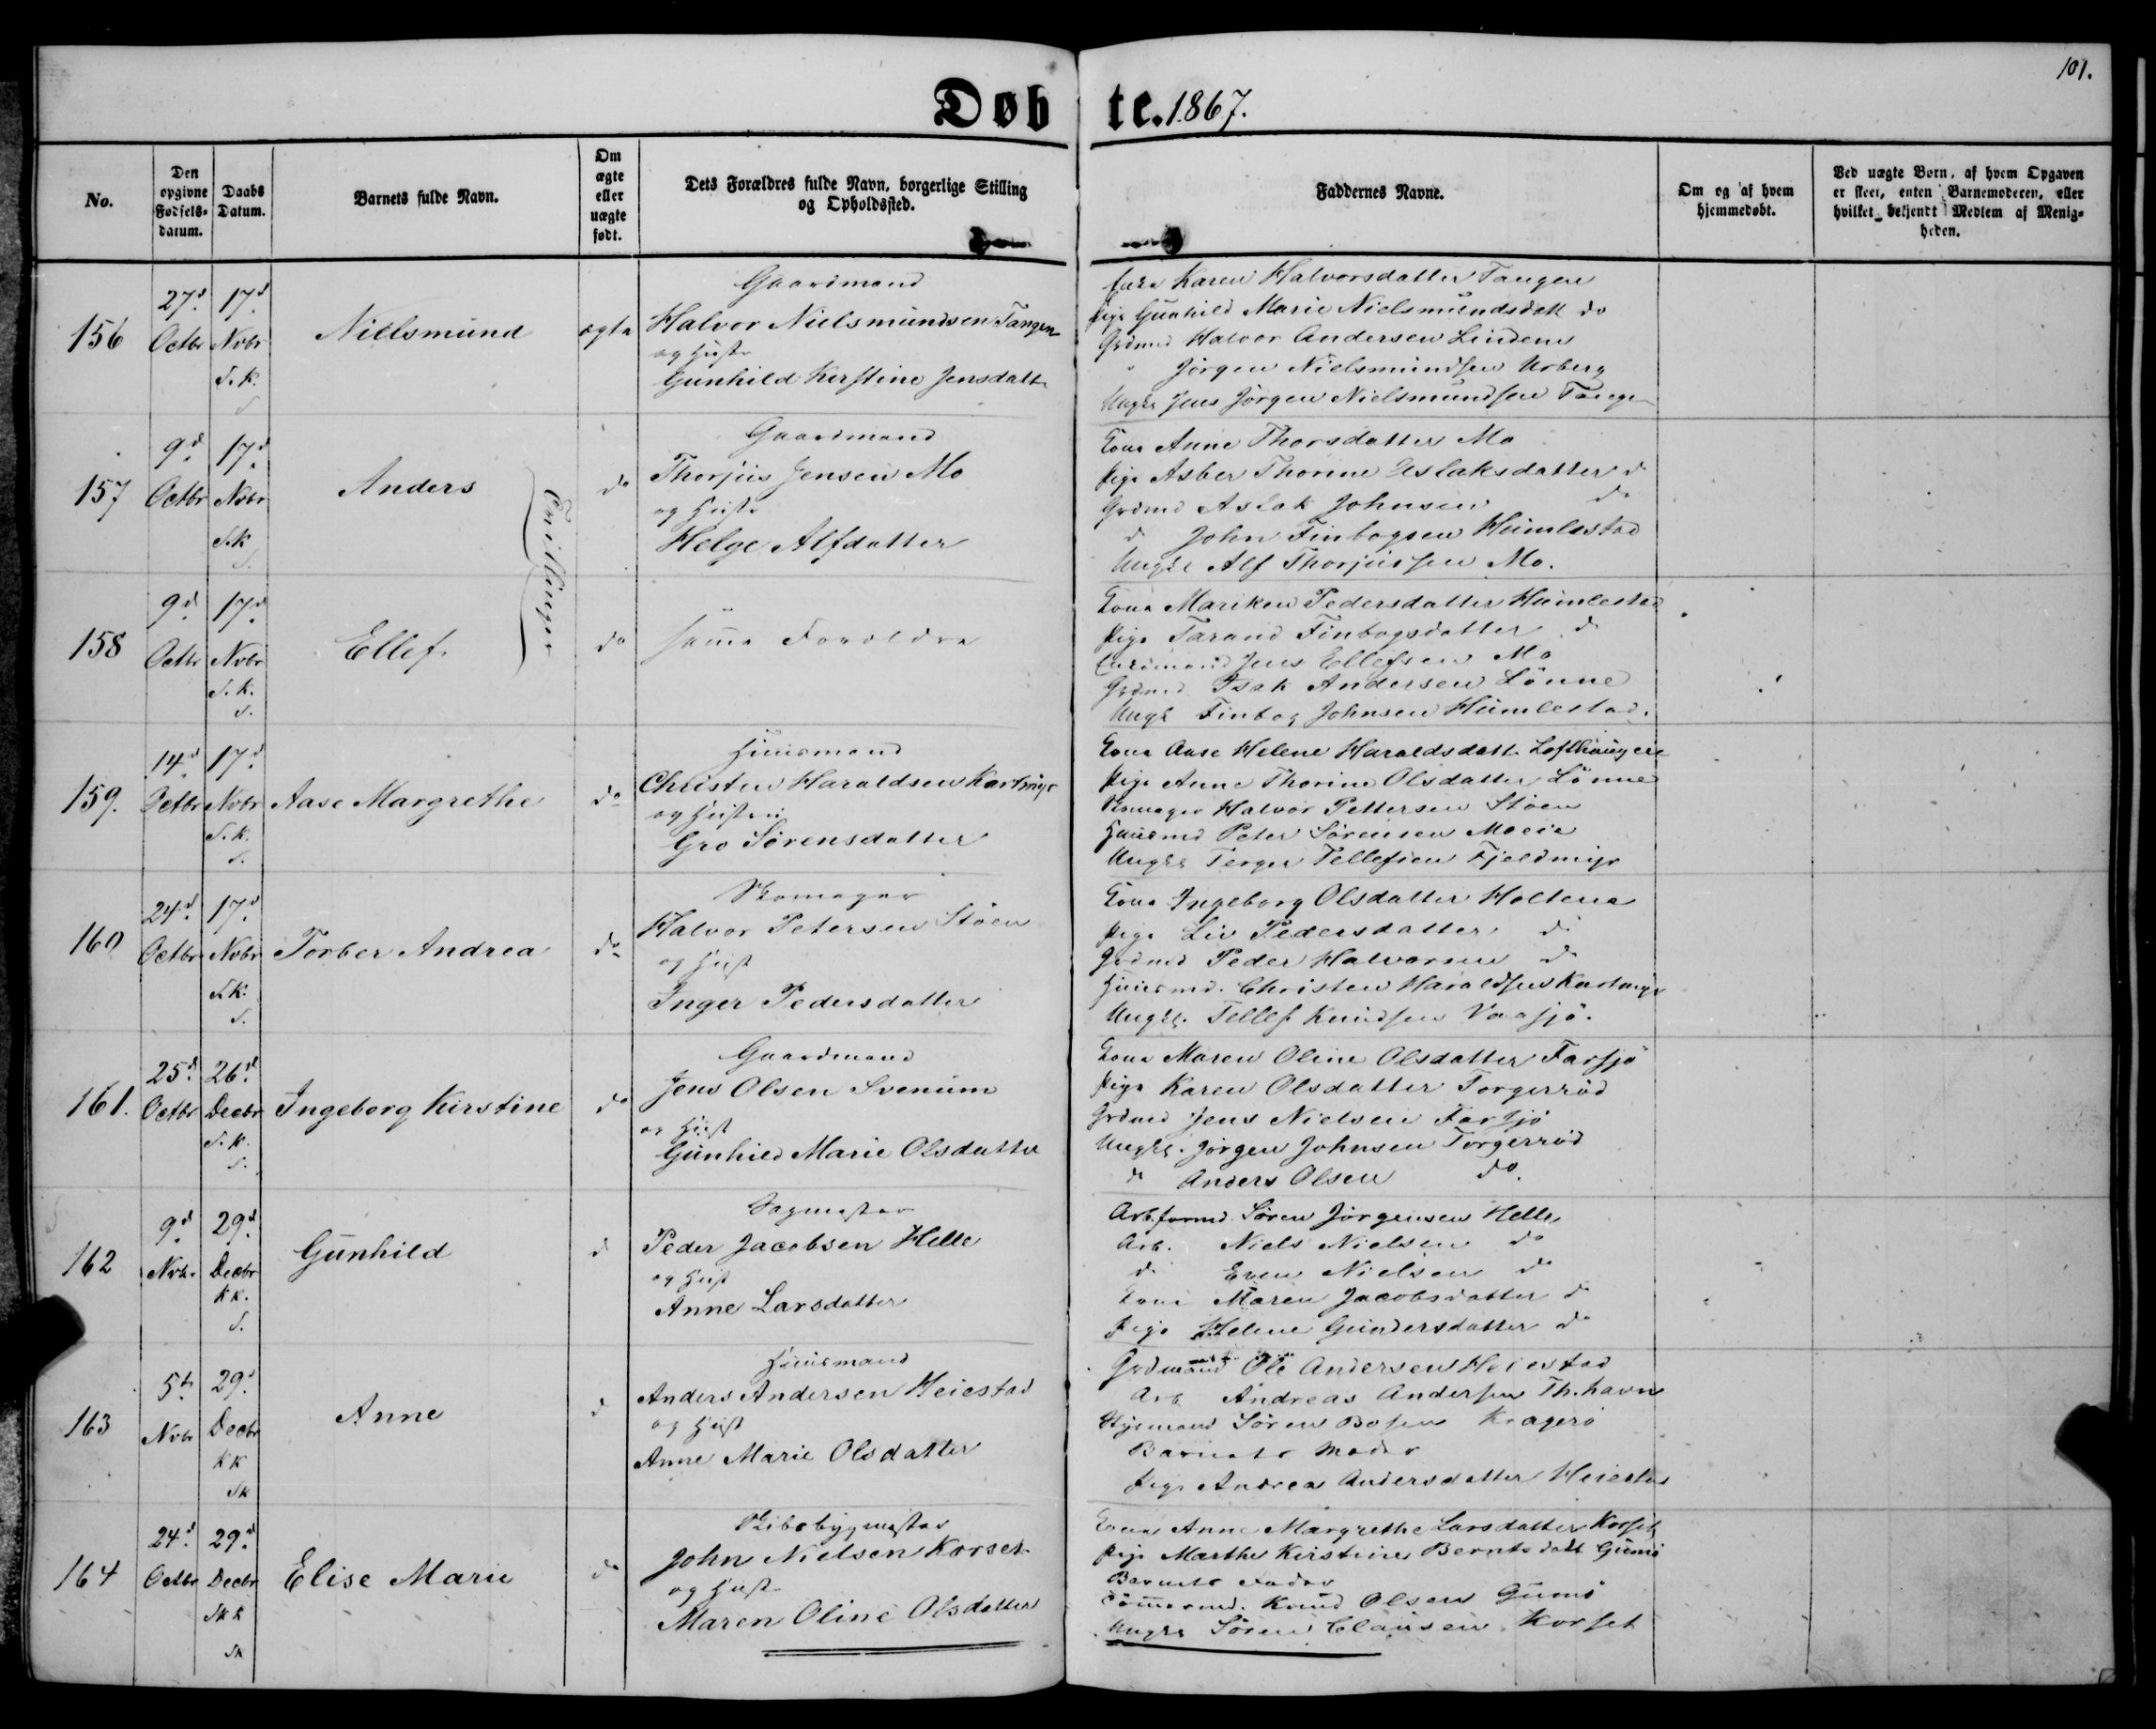 Døbte. 1867.
101.
No.
Den opgivne Fødsels-datum.
Daabs Datum.
Barnets fulde Navn.
Om ægte eller uægte født.
Dets Forældres fulde Navn, borgerlige Stilling og Opholdssted.
Faddernes Navne.
Om og af hvem hjemmedøbt.
Ved uægte Børn, af hvem Opgaven er skeet, enten Barnemoderen, eller hvilket bekjendt Medlem af Menigheden.
156
27d Octbr
17d Nvbr
S. K.
S
Nielsmund
ægte
Gaardmand
Halvor Nielsmundsen Tangen
og Hustr
Gunhild Kirstine Jensdattr
Karen Halvorsdatter Tangen
Pige Gunhild Marie Nielsmundsdatt do
Grdmd Halvor Andersen Lindem
" Jörgen Nielsmundsen Urberg
Ungkl Jens Jörgen Nielsmundsen Tangen
157
9d Octbr
17d Nvbr
S. K
S.
Anders
Tvillinger
do
Gaardmand
Thorjus Jensen Mo
og Hustr
Helge Alfdatter
Kone Anne Thorsdatter Mo
Pige Asber Thorine Aslaksdatter d
Grdmd Aslak Johnsen do
d John Finbogsen Humlestad
Ungkl Alf Thorjussen Mo.
158
9d Octbr
17d Nvbr
S. K.
S.
Ellef
do
samme Forældre
Kone Mariken Pedersdatter Humlestad
Pige Tarand Finbogsdatter d
Jens Ellefsen Mo
Grdmd Isak Andersen Lönne
Ungk Finbog Johnsen Humlestad.
159.
14d Octbr
17d Nvbr
S. K.
S.
Aase Margrethe
do
Huusmand
Christen Haraldsen Kartmyr
og Hustru
Gro Sörensdatter
Kone Aase Helene Haraldsdatt. Lofthaugen
Pige Anne Thorine Olsdatter Lönne
Skomager Halvor Pettersen Stöen
Huusmd Peter Sörensen Moeie
Ungkl Terger Tellefsen Fjeldmyr
160
24d Octbr
17d Nvbr
S. K.
S.
Torber Andrea
do
Skomager
Halvor Petersen Stöen
og Hust
Inger Pedersdatter
Kone Ingeborg Olsdatter Holtene
Pige Liv Pedersdatter d
Grdmd Peder Halvorsen d
Huusmd. Christen Haraldsen Kartmyr
Ungkl. Tellef Knudsen Vaasjö.
161.
25d Octbr
26d Decbr
S. K.
S.
Ingeborg Kirstine
do
Gaardmand
Jens Olsen Svenum
og Hust
Gunhild Marie Olsdatter
Kone Maren Oline Olsdatter Farsjö
Pige Karen Olsdatter Torgerröd
Grdmd Jens Nielsen Farsjö
Ungkl. Jörgen Johnsen Torgerröd
d Anders Olsen do.
162
9d Nvbr
29d Decbr
K K.
S.
Gunhild
d
Sagmester
Peder Jacobsen Helle
og Hust
Anne Larsdatter
Arb.formd. Sören Jörgensen Helle
Arb. Niels Nielsen do
d Even Nielsen do
Kone Maren Jacobsdatter d
Pige Helene Gundersdatter do
163
5te Nvbr
29d Decbr
K K
Sk
Anne
d
Huusmand
Anders Andersen Heiestad
og Hust
Anne Marie Olsdatter
Grdmand Ole Andersen Heiestad
Arb Andreas Andersen Th.havn
Styrmand Sören Boysen Kragerö
Barnets Moder
Pige Andrea Andersdatter Heiestad
164
24d Octbr
29d Decbr
Sk K
Sk
Elise Marie
do
Skibsbygmester
John Nielsen Korset
og Hust
Maren Oline Olsdatter
Kone Anne Margrethe Larsdatter Korset
Pige Marthe Kirstine Berntsdatt Gumö
Barnets Fader
Tömmermd. Knud Olsen Gumö
Ungkl Sören Clausen Korset